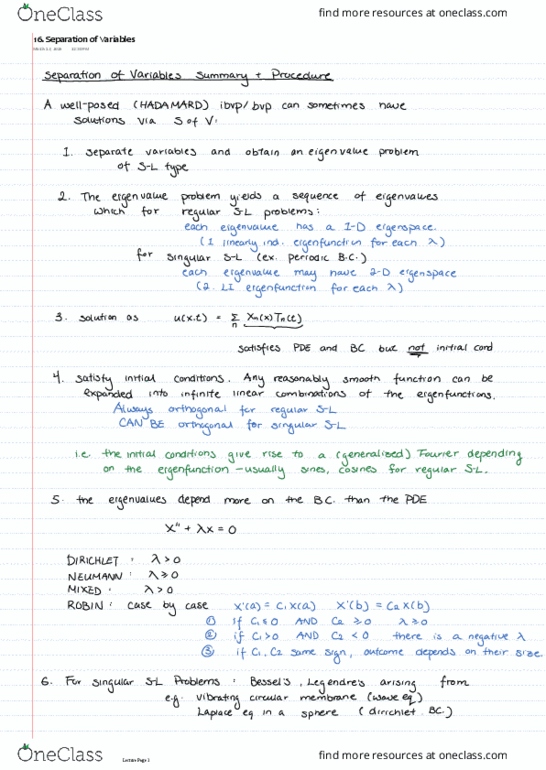 OneClass
find more resources at oneclass.com
16. Separation of Variables
Separation of Variables Summary + Procedure
A well-posed (HADAMARD) ibvp/bvp can sometimes have
solutions via S of V:
1. separate variables and obtain an eigenvalue problem
of S-L type
2. The eigenvalue problem yields a sequence of eigenvalues
which for regular S-L problems:
each eigenvalue has a 1-D eigenspace.
(1 linearly ind. eigenfunction for each λ)
for singular S-L (ex. periodic B.C.)
each eigenvalue may have 2-D eigenspace
(2 LI eigenfunction for each λ)
3. solution as u(x,t) = Σ Xn(x)Tn(t)
n
satisfies PDE and BC but not initial cond
4. satisfy initial conditions. Any reasonably smooth function can be
expanded into infinite linear combinations of the eigenfunctions.
Always orthogonal for regular S-L
CAN BE orthogonal for singular S-L
i.e. the initial conditions give rise to a (generalised) Fourier depending
on the eigenfunction - usually sines, cosines for regular S-L.
5. the eigenvalues depend more on the B.C. than the PDE
X" + λX = 0
DIRICHLET: λ > 0
NEUMANN: λ ≥ 0
MIXED: λ > 0
ROBIN: case by case X'(a) = C₁X(a) X'(b) = C₂X(b)
① if C₁ ≤ 0 AND C₂ ≥ 0 λ ≥ 0
② if C₁ > 0 AND C₂ < 0 there is a negative λ
③ if C₁, C₂ same sign, outcome depends on their size.
6. For singular S-L Problems: Bessel's, Legendre's arising from
e.g. vibrating circular membrane (wave eq)
Laplace eq in a sphere (dirichlet BC.)
Lecture Page 1
OneClass
find more resources at oneclass.com